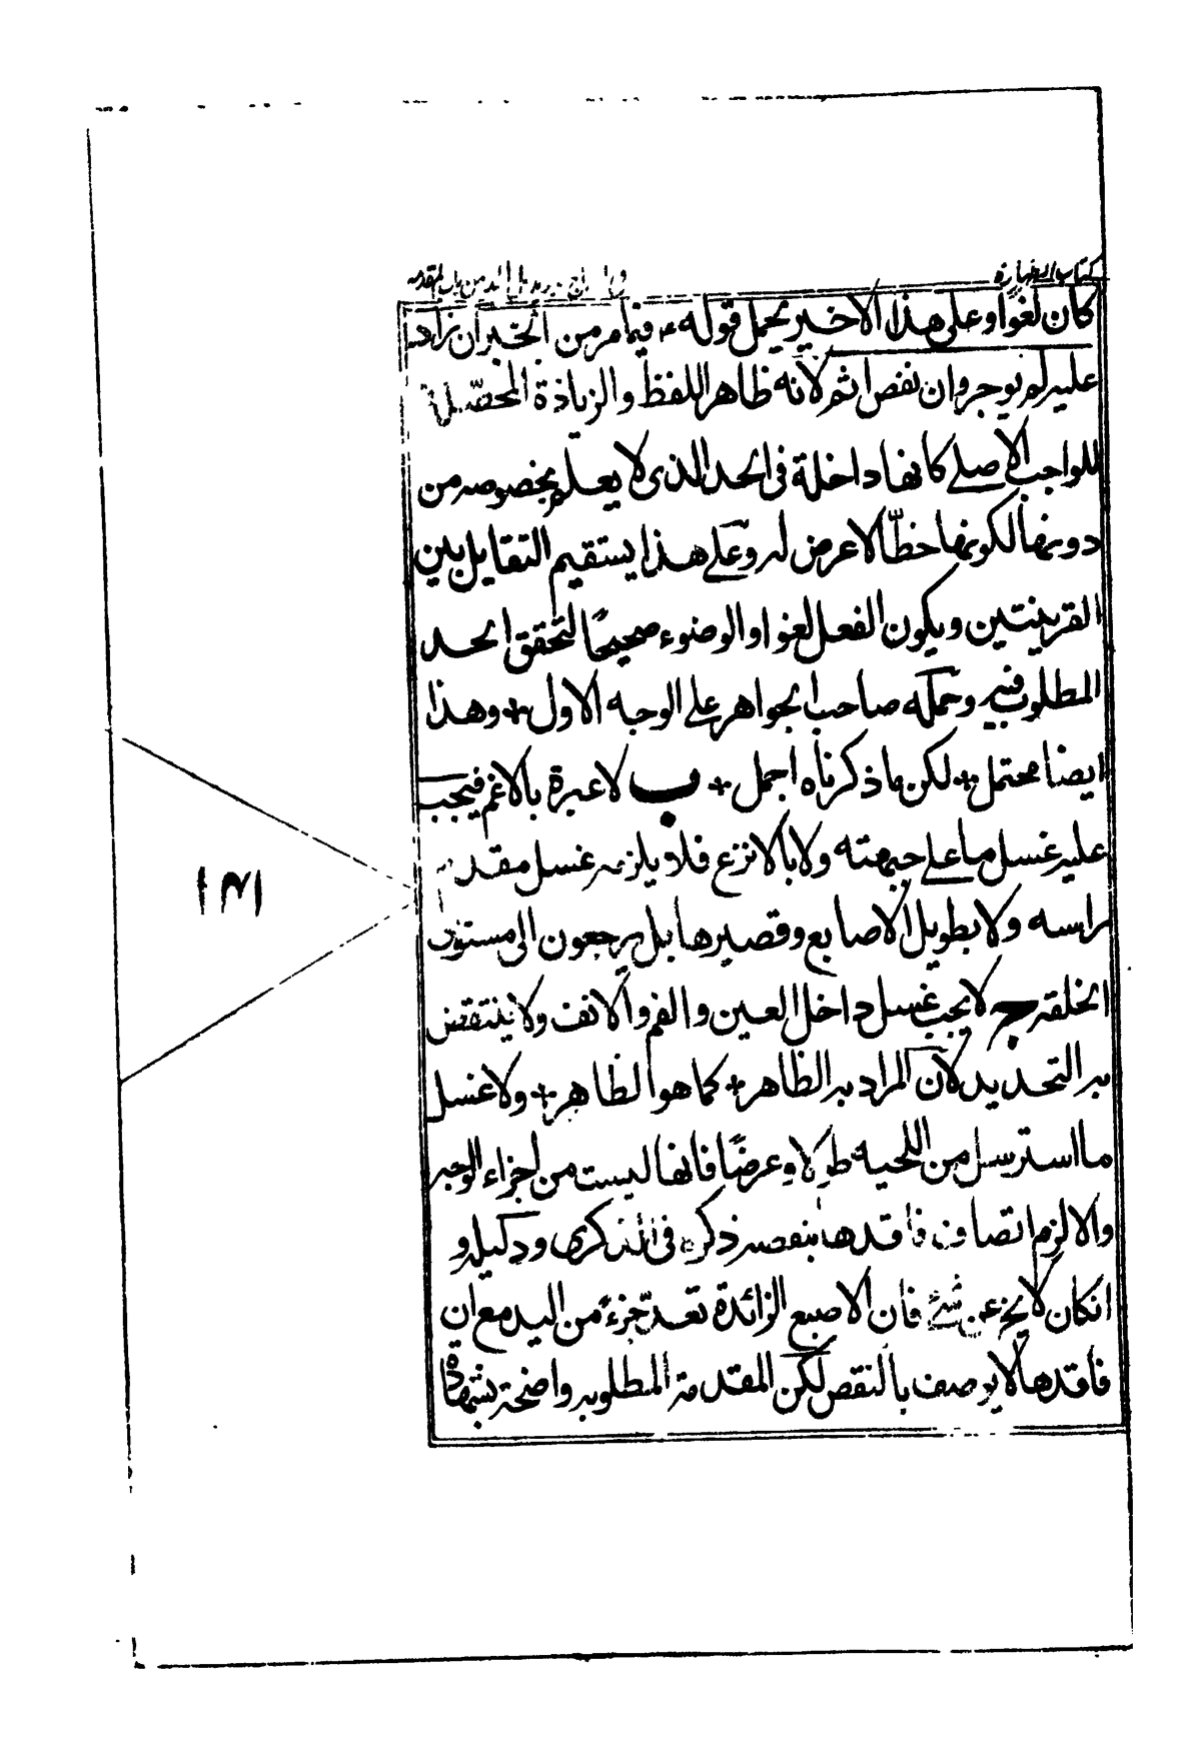 كتاب الطهارة
من باب المقدمه
كان لغوًا وعلى هذا الاخير يحمل قوله ع فيما مر من الخبر ان زاد
عليه لم يوجر وان نقص اثم لانه ظاهر اللفظ والزيادة المحصّلة
للواجب الاصلے كانها داخلة فى الحد الذى لا يعلم بخصوصه من
دونها لكونها خطّا لا عرض له وعلے هذا يستقيم التقابل بين
القرينتين ويكون الفعل لغوا والوضوء صحيحًا لتحقق الحد
المطلوب فيه وحمله صاحب الجواهر علے الوجه الاول + وهذا
ايضا محتمل + لكن ما ذكرناه اجمل + ب لا عبرة بالاغم فيجب
عليه غسل ما علے جبهته ولا بالانزع فلا يلزمه غسل مقدم
راسه ولا بطويل الاصابع وقصيرها بل يرجعون الى مستوى
الخلقة ج لا يجب غسل داخل العين والفم والانف ولا ينتقض
به التحديد لان المراد به الظاهر + كما هو الظاهر + ولا غسل
ما استرسل من اللحية طولا وعرضًا فانها ليست من اجزاء الوجه
والا لزم اتصاف فاقدها بنقصه ذكره فى الذكرى ودليله و
انكان لا يخ عن شئ فان الاصبع الزائدة تعدّ جزءً من اليد مع ان
فاقدها لا يوصف بالنقص لكن المقدمة المطلوبه واضحة بشهادة
١٣١